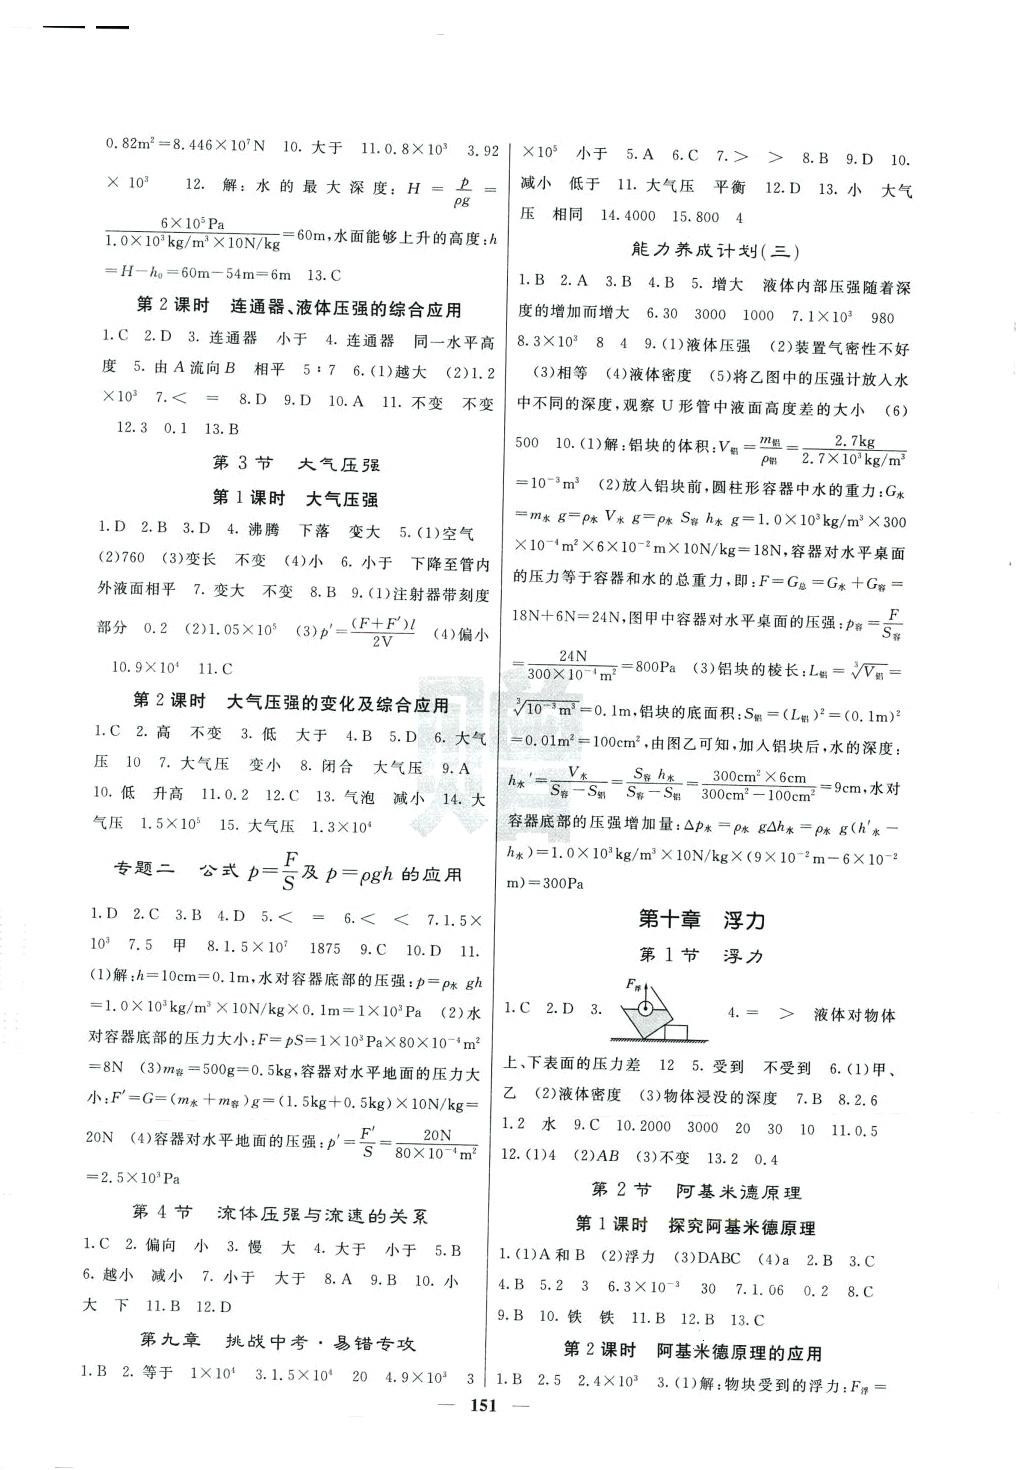 0.82m²=8.446×10⁷N 10. 大于 11.0.8×10³ 3.92
×10³ 12. 解:水的最大深度:H=p/ρg=
6×10⁵Pa/(1.0×10³kg/m³×10N/kg)=60m,水面能够上升的高度:h
=H-h₀=60m-54m=6m 13.C
第2课时 连通器、液体压强的综合应用
1.C 2.D 3. 连通器 小于 4. 连通器 同一水平高
度 5. 由A流向B 相平 5:7 6.(1)越大 (2)1.2
×10³ 7.< = 8.D 9.D 10.A 11. 不变 不变
12.3 0.1 13.B
第3节 大气压强
第1课时 大气压强
1.D 2.B 3.D 4. 沸腾 下落 变大 5.(1)空气
(2)760 (3)变长 不变 (4)小 6. 小于 下降至管内
外液面相平 7. 变大 不变 8.B 9.(1)注射器带刻度
部分 0.2 (2)1.05×10⁵ (3)p′=(F+F′)l/2V (4)偏小
10.9×10⁴ 11.C
第2课时 大气压强的变化及综合应用
1.C 2. 高 不变 3. 低 大于 4.B 5.D 6. 大气
压 10 7. 大气压 变小 8. 闭合 大气压 9.A
10. 低 升高 11.0.2 12.C 13. 气泡 减小 14. 大
气压 1.5×10⁵ 15. 大气压 1.3×10⁴
专题二 公式 p=F/S 及 p=ρgh 的应用
1.D 2.C 3.B 4.D 5.< = 6.< < 7.1.5×
10³ 7.5 甲 8.1.5×10⁷ 1875 9.C 10.D 11.
(1)解:h=10cm=0.1m,水对容器底部的压强:p=ρ水gh
=1.0×10³kg/m³×10N/kg×0.1m=1×10³Pa (2)水
对容器底部的压力大小:F=pS=1×10³Pa×80×10⁻⁴m²
=8N (3)m容=500g=0.5kg,容器对水平地面的压力大
小:F′=G=(m水+m容)g=(1.5kg+0.5kg)×10N/kg=
20N (4)容器对水平地面的压强:p′=F′/S=20N/(80×10⁻⁴m²)
=2.5×10³Pa
第4节 流体压强与流速的关系
1.C 2. 偏向 小 3. 慢 大 4. 大于 小于 5.B
6. 越小 减小 7. 小于 大于 8.A 9.B 10. 小
大 下 11.B 12.D
第九章 挑战中考·易错专攻
1.B 2. 等于 1×10⁴ 3.1.5×10⁴ 20 4.9×10³ 3
×10⁵ 小于 5.A 6.C 7.> > 8.B 9.D 10.
减小 低于 11. 大气压 平衡 12.D 13. 小 大气
压 相同 14.4000 15.800 4
能力养成计划(三)
1.B 2.A 3.B 4.B 5. 增大 液体内部压强随着深
度的增加而增大 6.30 3000 1000 7.1×10³ 980
8.3×10³ 8 4 9.(1)液体压强 (2)装置气密性不好
(3)相等 (4)液体密度 (5)将乙图中的压强计放入水
中不同的深度,观察U形管中液面高度差的大小 (6)
500 10.(1)解:铝块的体积:V铝=m铝/ρ铝=2.7kg/(2.7×10³kg/m³)
=10⁻³m³ (2)放入铝块前,圆柱形容器中水的重力:G水
=m水g=ρ水V水g=ρ水S容h水g=1.0×10³kg/m³×300
×10⁻⁴m²×6×10⁻²m×10N/kg=18N,容器对水平桌面
的压力等于容器和水的总重力,即:F=G总=G水+G容=
18N+6N=24N,图甲中容器对水平桌面的压强:p容=F/S容
=24N/(300×10⁻⁴m²)=800Pa (3)铝块的棱长:L铝=∛V铝=
∛(10⁻³m³)=0.1m,铝块的底面积:S铝=(L铝)²=(0.1m)²
=0.01m²=100cm²,由图乙可知,加入铝块后,水的深度:
h水′=V水/(S容-S铝)=S容h水/(S容-S铝)=300cm²×6cm/(300cm²-100cm²)=9cm,水对
容器底部的压强增加量:Δp水=ρ水gΔh水=ρ水g(h′水-
h水)=1.0×10³kg/m³×10N/kg×(9×10⁻²m-6×10⁻²
m)=300Pa
第十章 浮力
第1节 浮力
F浮
1.C 2.D 3. 4.= > 液体对物体
上、下表面的压力差 12 5. 受到 不受到 6.(1)甲、
乙 (2)液体密度 (3)物体浸没的深度 7.B 8.2.6
1.2 水 9.C 10.2000 3000 20 30 10 11.0.5
12.(1)4 (2)AB (3)不变 13.2 0.4
第2节 阿基米德原理
第1课时 探究阿基米德原理
1.(1)A和B (2)浮力 (3)DABC (4)a 2.B 3.C
4.B 5.2 3 6.3×10⁻³ 30 7.1.06 0.2 8.C
9.B 10. 铁 铁 11.B 12.B 13.C
第2课时 阿基米德原理的应用
1.B 2.5 2.4×10³ 3.(1)解:物块受到的浮力:F浮=
— 151 —